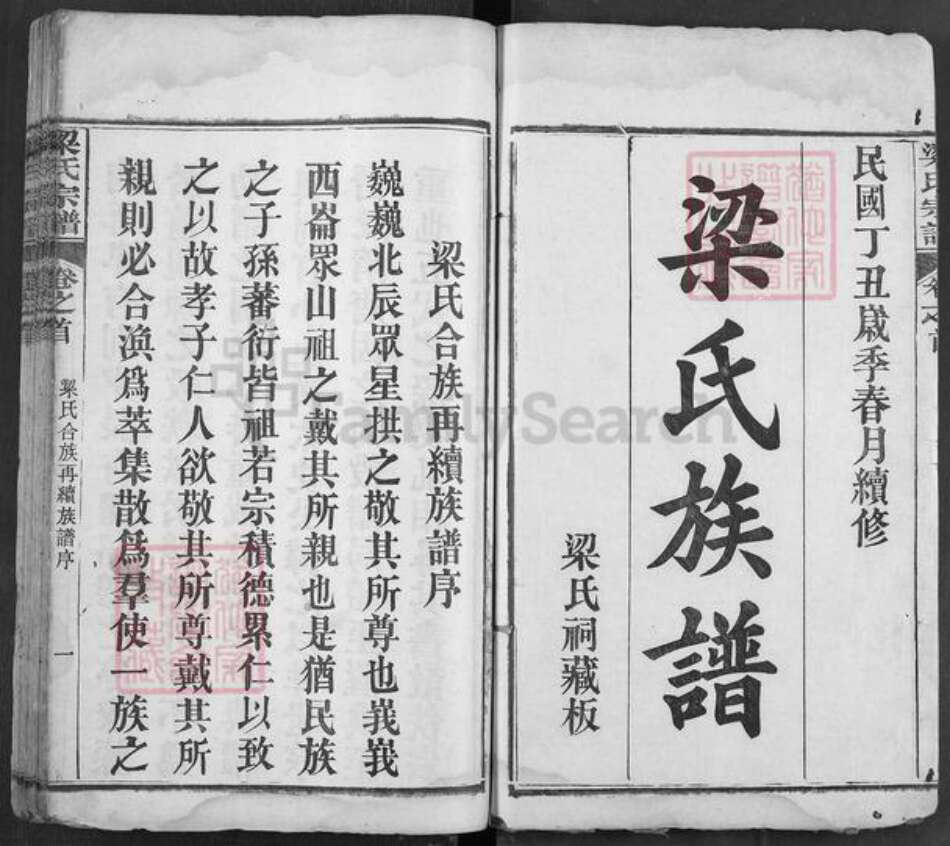 梁氏宗譜
卷之首
民國丁丑歲季春月續修
梁氏族譜
梁氏祠藏板
梁氏合族再續族譜序
巍巍北辰眾星拱之敬其所尊也峩峩
西崙眾山祖之戴其所親也是猶民族
之子孫蕃衍皆祖若宗積德累仁以致
之以故孝子仁人欲敬其所尊戴其所
親則必合渙爲萃集散爲羣使一族之
梁氏宗譜
卷之首
梁氏合族再續族譜序
一
FamilySearch